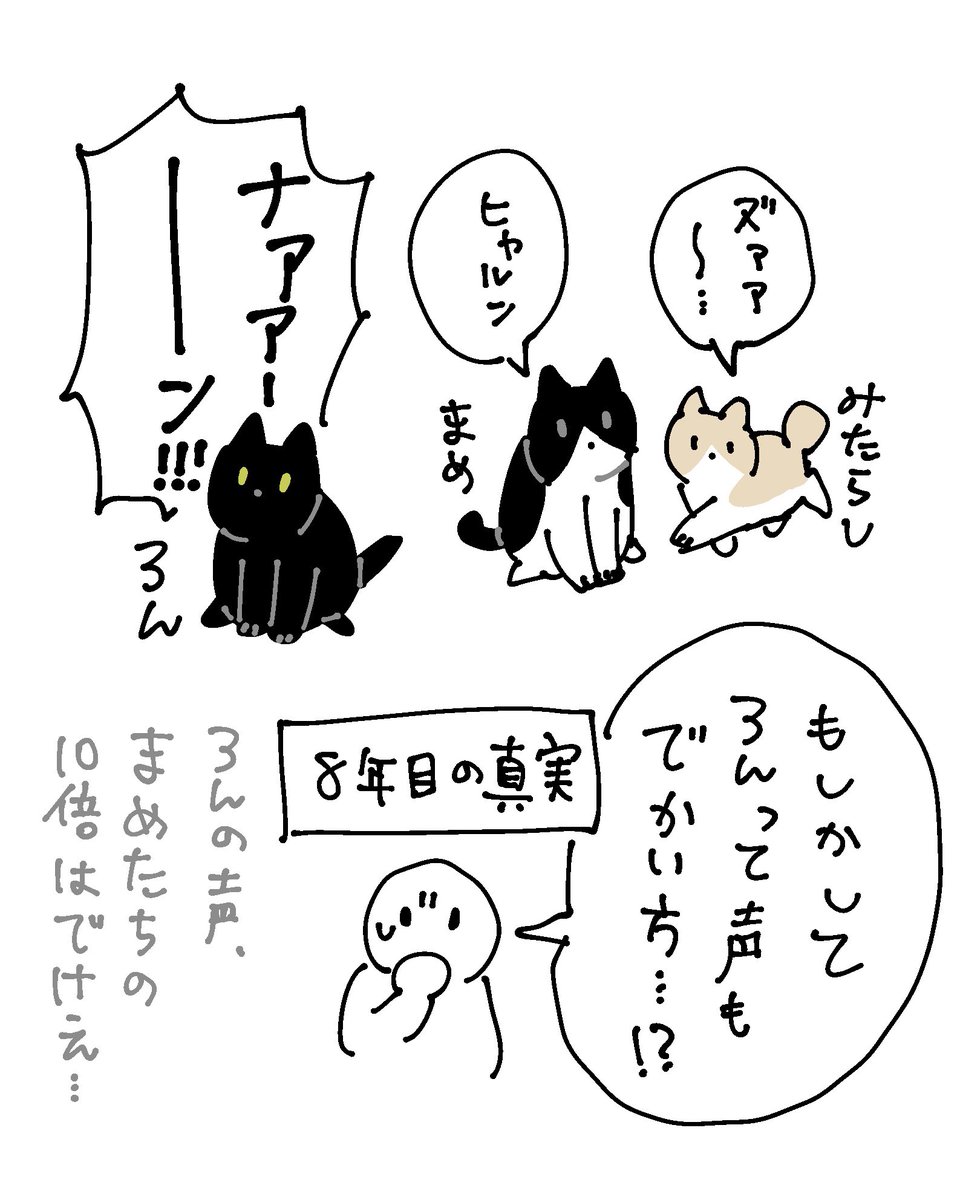 ズァァ
〜…
みたらし
ヒャルン
まめ
ナァァー
ーン!!!
ろん
もしかして
ろんって声も
でかい方…!?
8年目の真実
ろんの声、
まめたちの
10倍はでけえ…